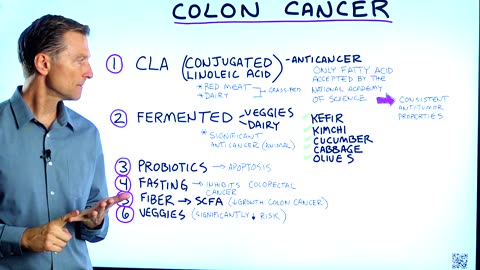 COLON CANCER
① CLA (CONJUGATED LINOLEIC ACID) - ANTICANCER
* RED MEAT
* DAIRY
GRASS-FED
ONLY FATTY ACID
ACCEPTED BY THE
NATIONAL ACADEMY
OF SCIENCE
CONSISTENT
ANTITUMOR
PROPERTIES
② FERMENTED
VEGGIES
DAIRY
* SIGNIFICANT
ANTICANCER (ANIMAL)
KEFIR
KIMCHI
CUCUMBER
CABBAGE
OLIVES
③ PROBIOTICS → APOPTOSIS
④ FASTING → INHIBITS COLORECTAL
CANCER
⑤ FIBER → SCFA (↓GROWTH COLON CANCER)
⑥ VEGGIES (SIGNIFICANTLY ↓ RISK)